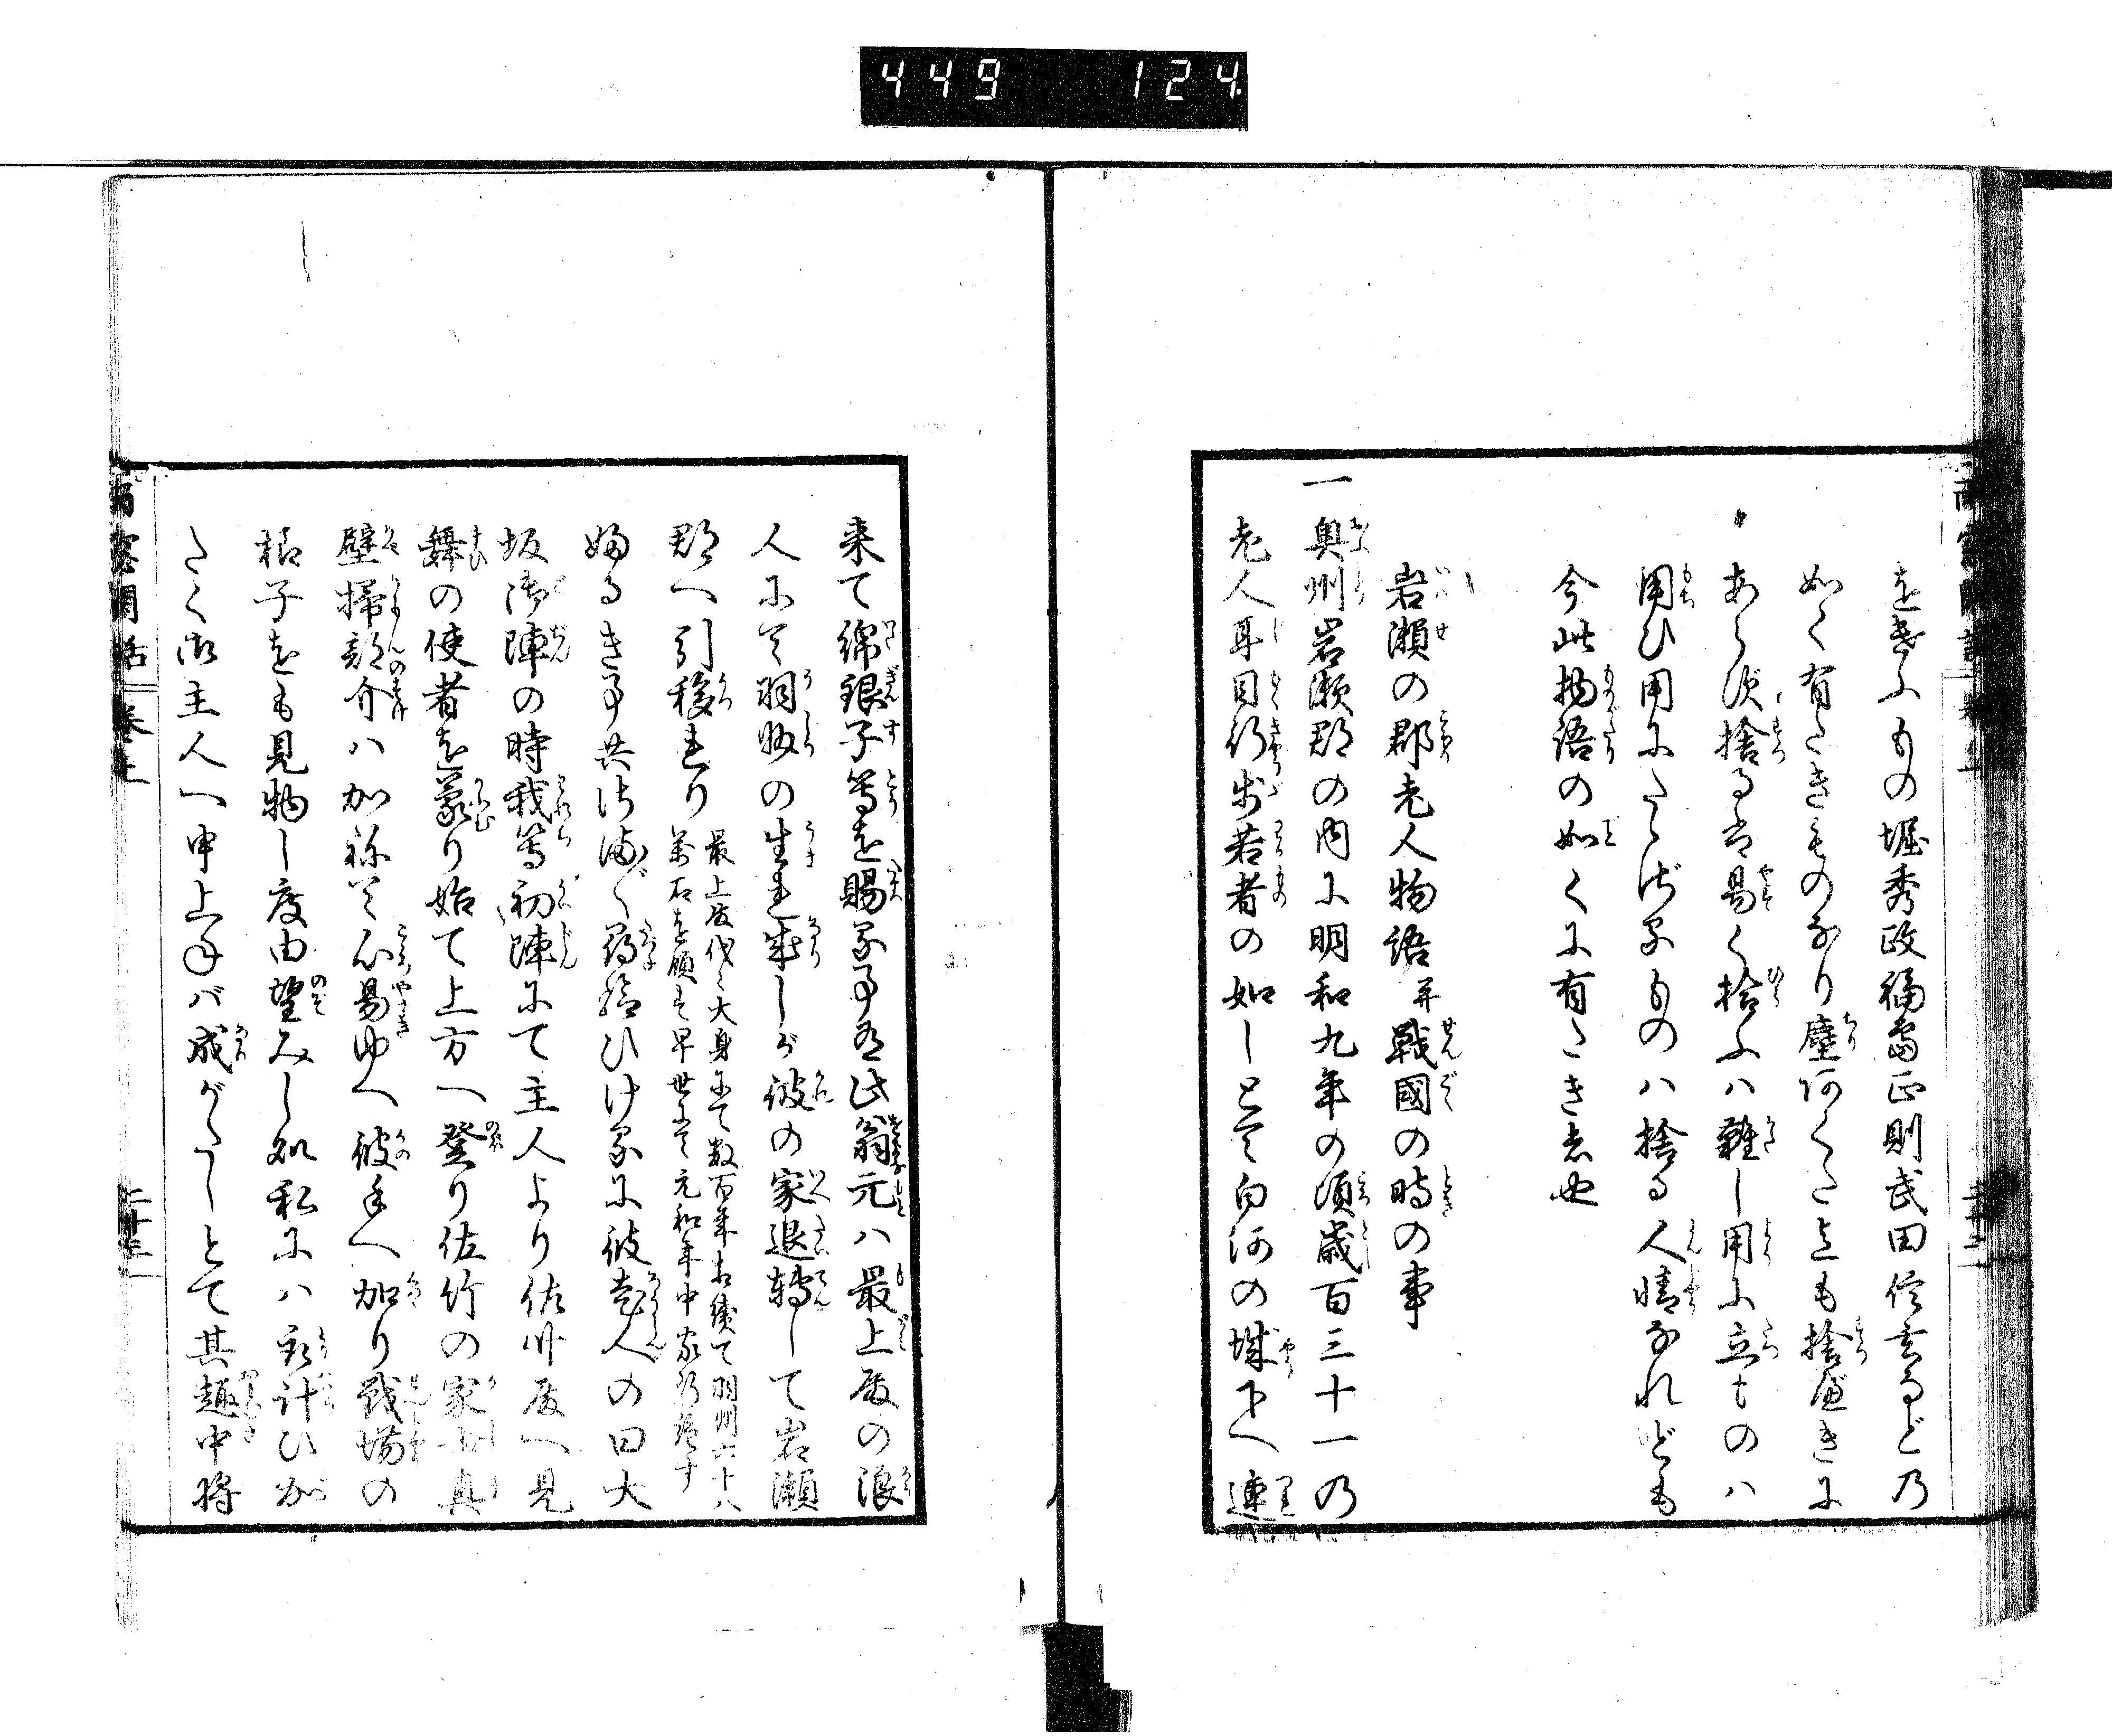 449 124
をきふもの堀秀政福島正則武田信玄などの
如く有たきものなり塵あくた迚も捨べきに
あらず捨るは易く拾ふハ難し用に立ものハ
用ひ用にたらざるものハ捨る人情なれども
今此物語の如くに有たき者也
岩瀬の郡老人物語并戦國の時の事
一奥州岩瀬郡の内に明和九年の頃歳百三十一の
老人耳目行歩若者の如しとて白河の城下へ連
来て綿銀子等を賜る事有此翁元ハ最上家の浪
人にて羽州の生れ成しが彼の家退轉して岩瀬
郡へ引移れり
最上家代々大身にて数百年相續て羽州六十八
萬石を領す早世にて元和年中家断絶す
る事共御尋給ひける に彼老人の曰大
坂御陣の時我等初陣にて主人より佐州家へ見
舞の使者を蒙り始て上方へ登り佐竹の家士真
壁掃部介ハ加祢て心易ゆへ彼手へ加り戦場の
様子をも見物し度由望みし処私にハ取計ひが
たく御主人へ申上ねバ成がたしとて其趣中将
雨窓閑話 巻上 二十三